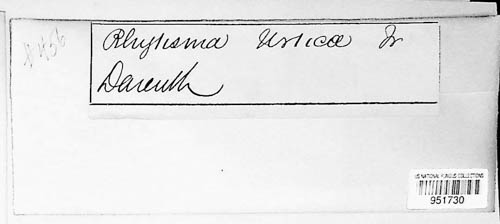 # 456
Rhytisma Urticæ Fr
Darenth
US NATIONAL FUNGUS COLLECTIONS
951730